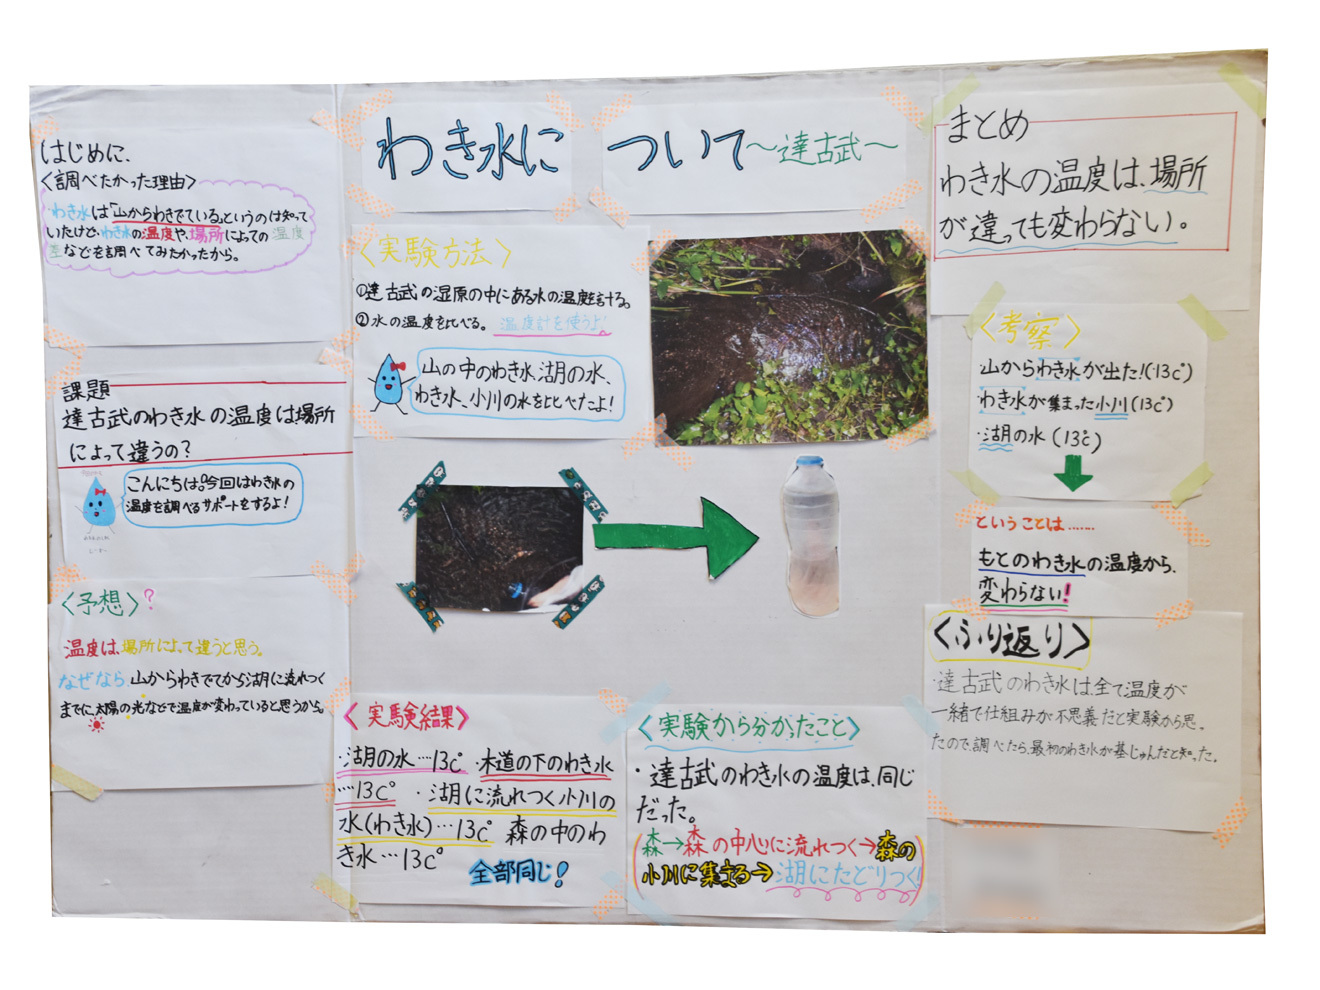 わき水について～達古武～
はじめに、
〈調べたかった理由〉
・わき水は「山からわきでている」というのは知って
いたけど、わき水の温度や、場所によっての温度
差などを調べてみたかったから。
課題
達古武のわき水の温度は場所
によって違うの？
こんにちは。今回はわき水の
温度を調べるサポートをするよ！
〈予想〉？
温度は、場所によって違うと思う。
なぜなら、山からわきでてから湖に流れつく
までに、太陽の光などで温度が変わっていると思うから。
〈実験方法〉
①達古武の湿原の中にある水の温度を計る。
②水の温度を比べる。 温度計を使うよ！
山の中のわき水、湖の水、
わき水、小川の水を比べたよ！
〈実験結果〉
・湖の水…13℃ ・木道の下のわき水
…13℃ ・湖に流れつく小川の
水(わき水)…13℃ 森の中のわ
き水…13℃
全部同じ！
〈実験から分かったこと〉
・達古武のわき水の温度は、同じ
だった。
(森→森の中心に流れつく→森の
小川に集まる→湖にたどりつく！)
まとめ
わき水の温度は、場所
が違っても変わらない。
〈考察〉
・山からわき水が出た！(13℃)
・わき水が集まった小川(13℃)
・湖の水(13℃)
ということは……
もとのわき水の温度から、
変わらない！
〈ふり返り〉
・達古武のわき水は、全て温度が
一緒で仕組みが不思議だと実験から思っ
たので、調べたら、最初のわき水が基じゅんだと知った。